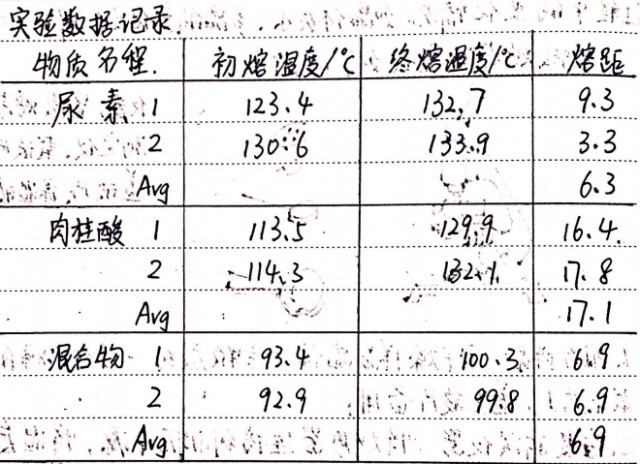 实验数据记录
物质名程. 初熔湿度/℃ 终熔湿度/℃ 熔距
尿素 1 123.4 132.7 9.3
2 130.6 133.9 3.3
Avg 6.3
肉桂酸 1 113.5 129.9 16.4
2 114.3 132.1 17.8
Avg 17.1
混合物 1 93.4 100.3 6.9
2 92.9 99.8 6.9
Avg 6.9